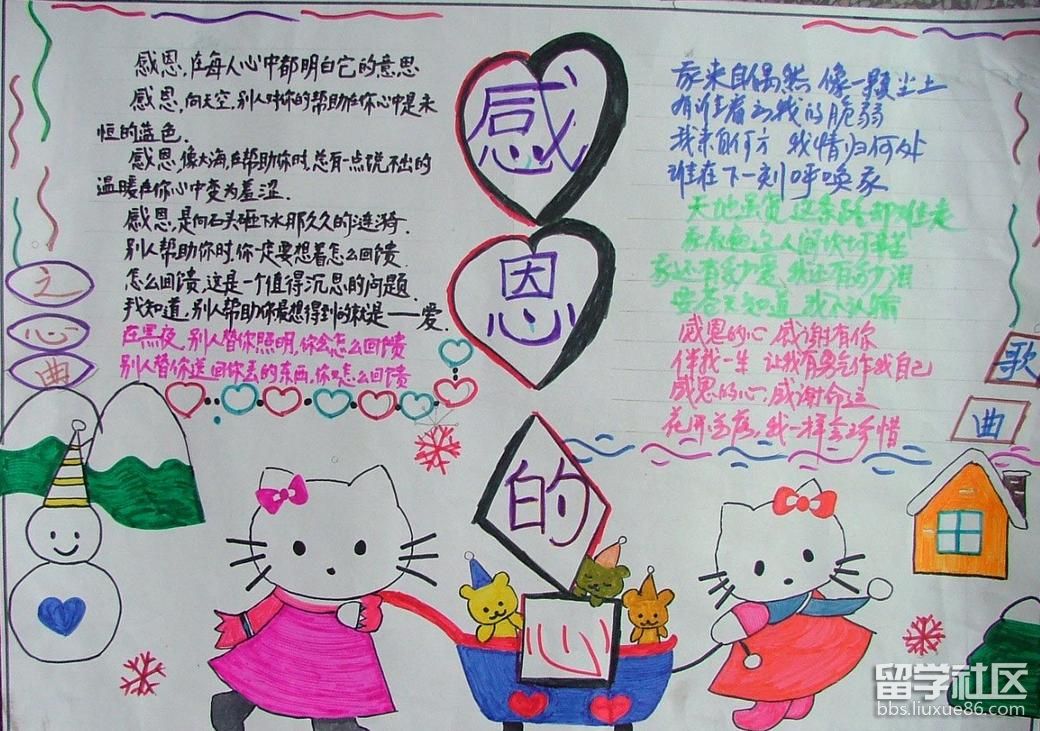 感恩,在每人心中都明白它的意思
感恩,向天空,别人对你的帮助在你心中是永
恒的蓝色.
感恩,像大海,在帮助你时,总有一点说不出的
温暖在你心中变为羞涩.
感恩,是向石头砸下水那久久的涟漪.
别人帮助你时.你一定要想着怎么回馈.
怎么回馈,这是一个值得沉思的问题.
我知道,别人帮助你最想得到的就是——爱.
在黑夜,别人替你照明,你会怎么回馈
别人替你送回你丢的东西,你又怎么回馈
之
心
曲
感
恩
的
心
我来自偶然 像一颗尘土
有谁看出我的脆弱
我来自何方 我情归何处
谁在下一刻呼唤我
天地虽宽 这条路却难走
我看遍这人间坎坷辛苦
我还有多少爱,我还有多少泪
要苍天知道 我不认输
感恩的心 感谢有你
伴我一生 让我有勇气作我自己
感恩的心,感谢命运
花开花落,我一样会珍惜
歌
曲
留学社区
bbs.liuxue86.com